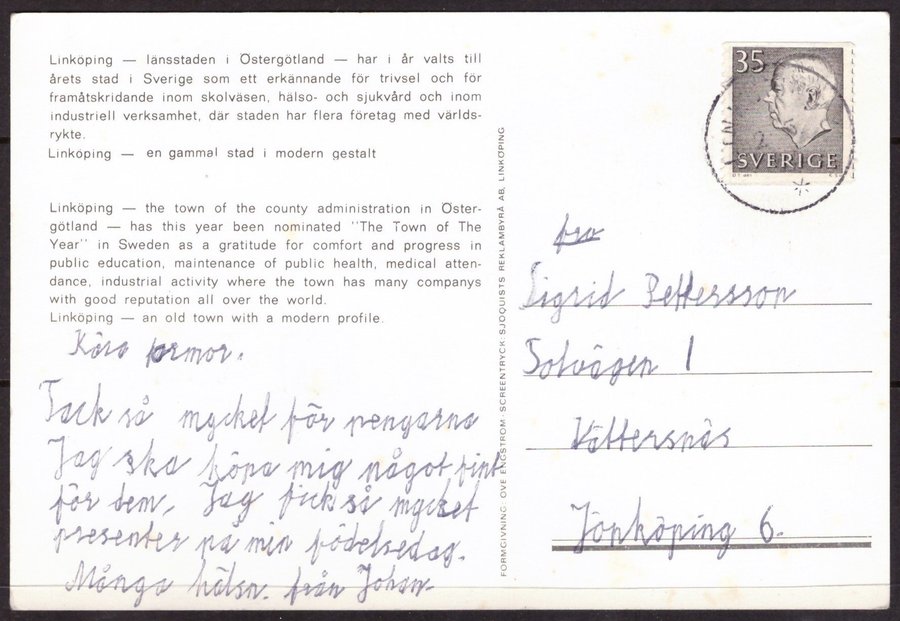 Linköping — länsstaden i Östergötland — har i år valts till
årets stad i Sverige som ett erkännande för trivsel och för
framåtskridande inom skolväsen, hälso- och sjukvård och inom
industriell verksamhet, där staden har flera företag med världs-
rykte.
Linköping — en gammal stad i modern gestalt
Linköping — the town of the county administration in Öster-
götland — has this year been nominated "The Town of The
Year" in Sweden as a gratitude for comfort and progress in
public education, maintenance of public health, medical atten-
dance, industrial activity where the town has many companys
with good reputation all over the world.
Linköping — an old town with a modern profile.
Kära farmor.
Tack så mycket för pengarna
Jag ska köpa mig något fint
för dem, Jag fick så mycket
presenter på min födelsedag.
Många hälsn. från Johan.
FORMGIVNING: OVE ENGSTRÖM · SCREENTRYCK: SJÖQUISTS REKLAMBYRÅ AB, LINKÖPING
35
SVERIGE
fru
Sigrid Pettersson
Solvägen 1
Vättersnäs
Jönköping 6.